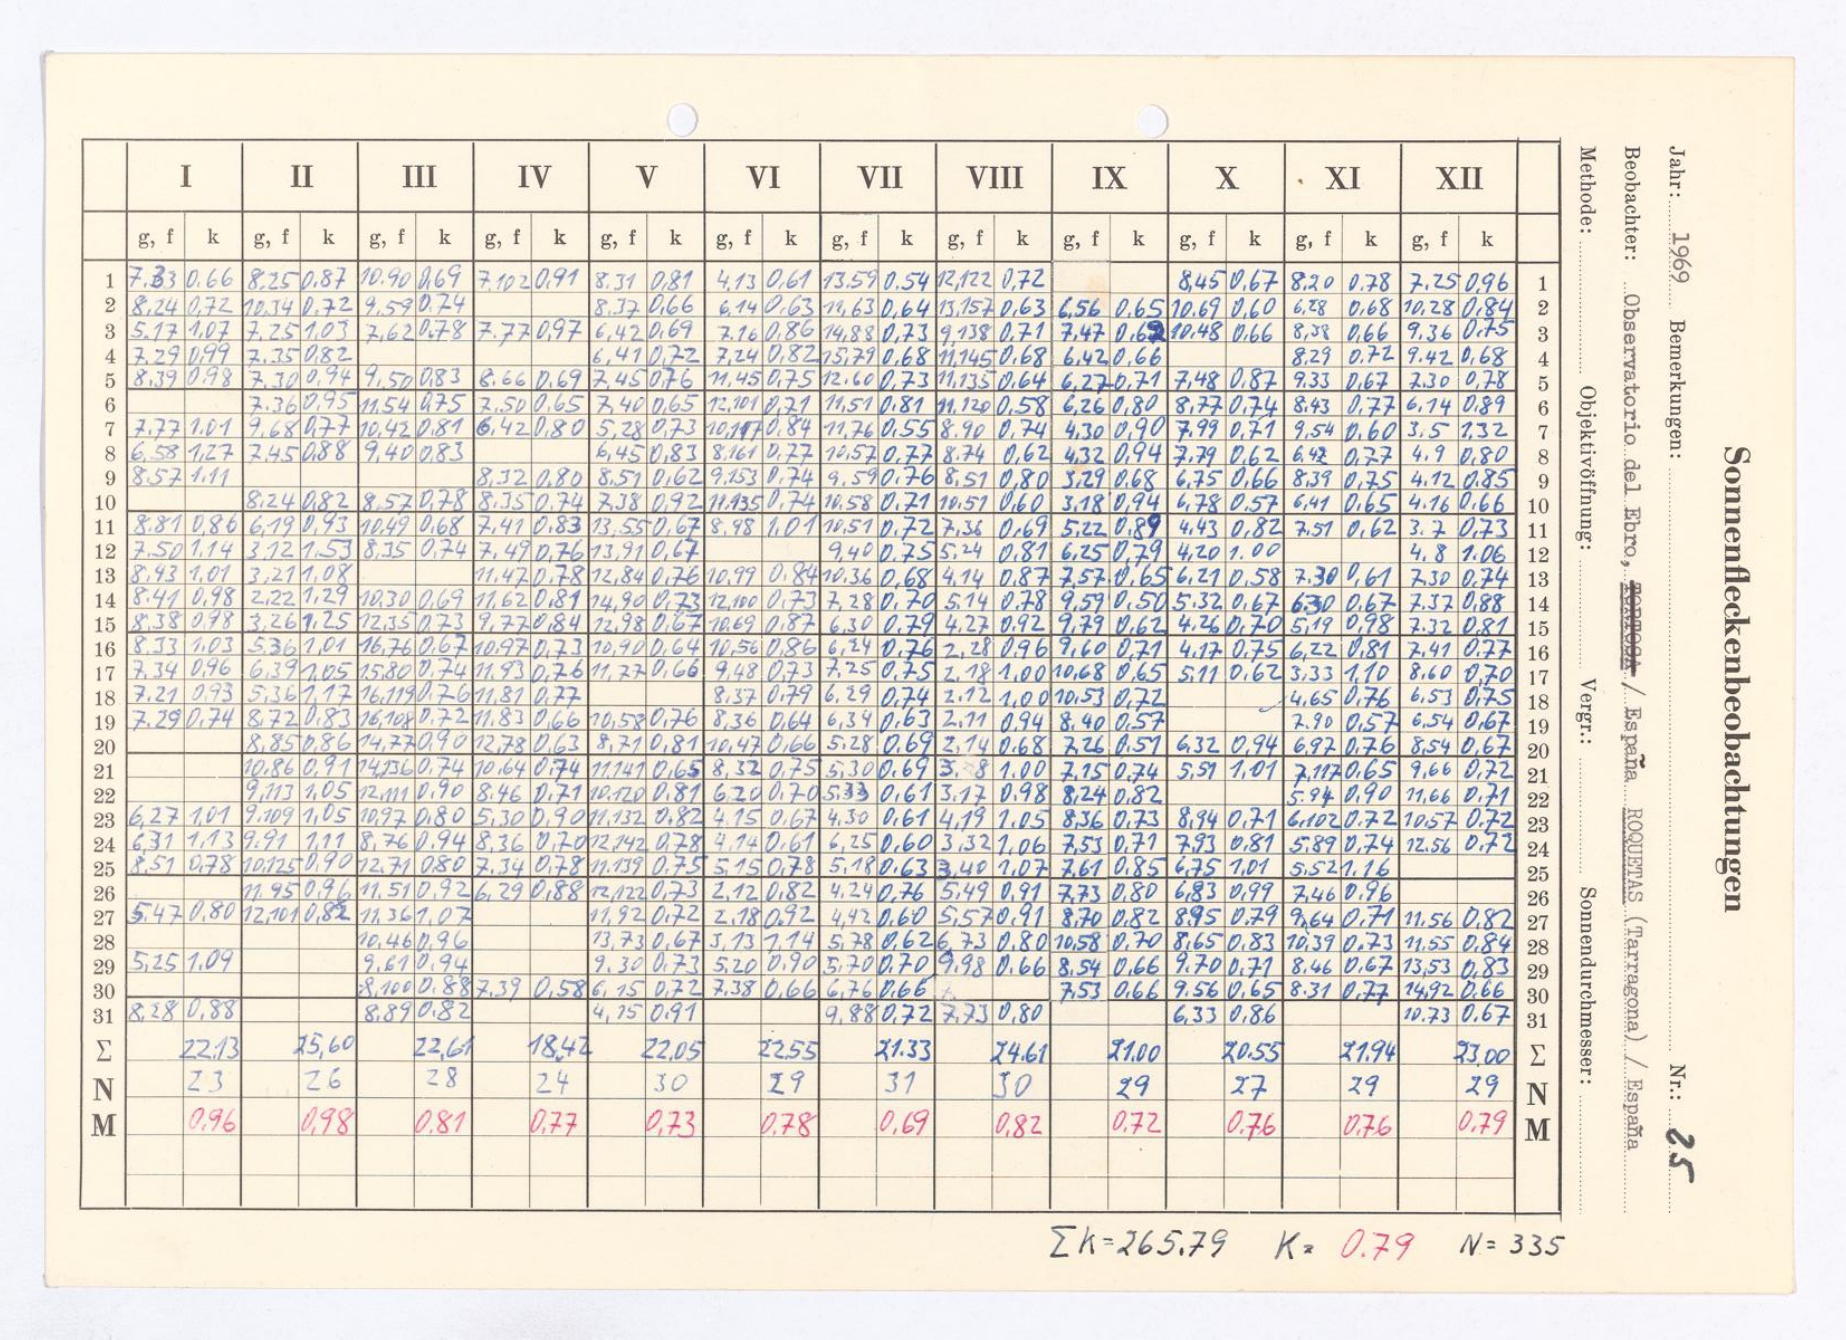 I II III IV V VI VII VIII IX X XI XII
g, f k g, f k g, f k g, f k g, f k g, f k g, f k g, f k g, f k g, f k g, f k g, f k
1 7.33 0.66 8.25 0.87 10.90 0.69 7.102 0,91 8.31 0,81 4,13 0,61 13.59 0.54 12,122 0,72 8,45 0,67 8,20 0.78 7.25 0,96 1
2 8,24 0,72 10.34 0.72 9.59 0.74 8.37 0,66 6,14 0,63 11,63 0,64 13,157 0,63 6,56 0.65 10.69 0,60 6,28 0,68 10,28 0,84 2
3 5.17 1.07 7.25 1.03 7,62 0,78 7.77 0,97 6,42 0,69 7.16 0,86 14,88 0,73 9,138 0,71 7,47 10,48 0,66 8,38 0,66 9.36 0,75 3
4 7.29 0.99 7.35 0.82 6,41 0,72 7,24 0,82 15,79 0,68 11,145 0,68 6,42 0,66 8,29 0,72 9.42 0,68 4
5 8,39 0.98 7.30 0,94 9,50 0,83 8.66 0,69 7,45 0,76 11,45 0,75 12.60 0,73 11,135 0,64 6,27 0,71 7,48 0,87 9.33 0,67 7.30 0,78 5
6 7.36 0,95 11.54 0,75 7,50 0,65 7,40 0,65 12,101 0,71 11,51 0.81 11,120 0,58 6,26 0,80 8,77 0,74 8.43 0,77 6.14 0.89 6
7 7.77 1.01 9,68 0,77 10,42 0.81 6,42 0,80 5,28 0,73 0,84 11,76 0,55 8.90 0,74 4.30 0,90 7.99 0,71 9,54 0,60 3.5 1,32 7
8 6,58 1,27 7.45 0,88 9,40 0,83 6,45 0,83 8,161 0,77 10,57 0,77 8.74 0,62 4,32 0,94 7,79 0,62 6,42 0,77 4.9 0,80 8
9 8.57 1.11 8,32 0,80 8.51 0,62 9,153 0,74 9.59 0,76 8,51 0,80 3,29 0,68 6,75 0,66 8,39 0,75 4.12 0.85 9
10 8,24 0,82 8,57 0,78 8,35 0,74 7,38 0,92 11.135 0,74 10,58 0,71 10,51 0,60 3.18 0,94 6,78 0,57 6,41 0,65 4.16 0,66 10
11 8.81 0,86 6,19 0,93 10,49 0,68 7,41 0,83 13,55 0,67 8,98 1,01 10,51 0,72 7,36 0,69 5,22 0,89 4,43 0,82 7,51 0,62 3.7 0,73 11
12 7.50 1.14 3,12 1.53 8,35 0,74 7,49 0,76 13,91 0,67 9,40 0,75 5,24 0,81 6,25 0,79 4,20 1.00 4.8 1.06 12
13 8,43 1,01 3,21 1,08 11,47 0,78 12,84 0,76 10,99 0,84 10,36 0,68 4,14 0,87 7,57 0,65 6,21 0,58 7.30 0,61 7.30 0,74 13
14 8.41 0,98 2,22 1,29 10,30 0,69 11,62 0,81 14,90 0,73 12,100 0,73 7,28 0,70 5.14 0,78 9,59 0,50 5.32 0,67 6.30 0,67 7.37 0,88 14
15 8,38 0,98 3,26 1,25 12,35 0,73 9,77 0,84 12,98 0,67 10,69 0,87 6,30 0,79 4,27 0,92 9,79 0,62 4.26 0,70 5,19 0,98 7.32 0,81 15
16 8.33 1,03 5,36 1,01 16,76 0,67 10,97 0,73 10,90 0,64 10,56 0,86 6,24 0,76 2,28 0,96 9,60 0,71 4.17 0,75 6,22 0,81 7.41 0,77 16
17 7.34 0,96 6,39 1,05 15,80 0,74 11,93 0,76 11,77 0,66 9,48 0,73 7,25 0,75 2,18 1,00 10,68 0,65 5,11 0,62 3,33 1,10 8,60 0,70 17
18 7.21 0,93 5,36 1,17 16,119 0,76 11,81 0,77 8,37 0,79 6,29 0,74 2.12 1,00 10,53 0,72 4,65 0,76 6,53 0,75 18
19 7.29 0,74 8,72 0,83 16,108 0,72 11,83 0,66 10,58 0,76 8,36 0,64 6,34 0,63 2,11 0,94 8,40 0,57 7.90 0,57 6,54 0,67 19
20 8,85 0,86 14,77 0,90 12,78 0,63 8,71 0,81 10,47 0,66 5,28 0,69 2,14 0,68 7,26 0,51 6,32 0,94 6,97 0,76 8,54 0,67 20
21 10,86 0,91 14,136 0,74 10,64 0,74 11,141 0,65 8,32 0,75 5,30 0,69 1,00 7,15 0,74 5,51 1,01 7,117 0,65 9,66 0,72 21
22 9,113 1,05 12,111 0,90 8.46 0,71 10,120 0,81 6,20 0,70 5,33 0,61 3,17 0,98 8,24 0,82 5,94 0,90 11,66 0,71 22
23 6,27 1,01 9.109 1,05 10,97 0,80 5,30 0,90 11,132 0,82 4.15 0,67 4.30 0,61 4,19 1.05 8,36 0,73 8,94 0,71 6,102 0,72 10,57 0,72 23
24 6,31 1,13 9.91 1,11 8,76 0,94 8,36 0,70 12,142 0,78 4,14 0,61 6,25 0,60 3,32 1,06 7,53 0,71 7,93 0,81 5,89 0,74 12.56 0,72 24
25 8,51 0,78 10,125 0,90 12,71 0,80 7,34 0,78 11,139 0,75 5,15 0,78 5,18 0,63 3,40 1,07 7,61 0,85 6,75 1.01 5,52 1.16 25
26 11,95 0,96 11,51 0,92 6,29 0,88 12,122 0,73 2.12 0,82 4.24 0,76 5,49 0,91 7,73 0,80 6,83 0,99 7,46 0,96 26
27 5.47 0,80 12,101 0,82 11,36 1,07 11,92 0,72 2.18 0,92 4,42 0,60 5,57 0,91 8,70 0,82 8,95 0,79 9,64 0,71 11.56 0,82 27
28 10,46 0,96 13,73 0,67 3,13 1,14 5,78 0,62 6,73 0,80 10,58 0,70 8,65 0,83 10,39 0,73 11,55 0,84 28
29 5,25 1.09 9,61 0,94 9.30 0,73 5,20 0,90 5,70 0,70 9,98 0,66 8,54 0,66 9.70 0,71 8.46 0,67 13,53 0,83 29
30 8,100 0,88 7,39 0,58 6,15 0,72 7,38 0,66 6,76 0,66 7,53 0,66 9.56 0,65 8.31 0,77 14,92 0,66 30
31 8,28 0,88 8,89 0,82 4,15 0,91 9,88 0,72 7,73 0,80 6,33 0,86 10.73 0,67 31
Σ 22.13 25,60 22,61 18,42 22,05 22.55 21.33 24.61 21.00 20.55 21.94 23,00 Σ
N 23 26 28 24 30 29 31 30 29 27 29 29 N
M 0.96 0,98 0.81 0,77 0,73 0,78 0,69 0,82 0.72 0.76 0.76 0.79 M
Σk=265.79 K= 0.79 N= 335
Sonnenfleckenbeobachtungen
Jahr: 1969 Bemerkungen: Nr.: 25
Beobachter: Observatorio del Ebro, TORTOSA / España ROQUETAS (Tarragona) / España
Methode: Objektivöffnung: Vergr.: Sonnendurchmesser: